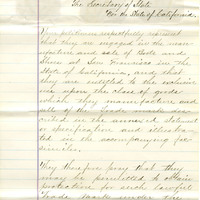 The Secretary of State
For the State of California.
Your petitioners respectfully represent
that they are engaged in the manu-
facture and sale of Boots and
Shoes at San Francisco in the
State of California, and that
they are entitled to the exclusive
use upon the class of goods
which they manufacture and
sell of the trade mark des-
cribed in the annexed statement
or specification and illustra-
ted in the accompanying fac-
similes.
They therefore pray that they
may be permitted to obtain
protection for such lawful
Trade Mark under the